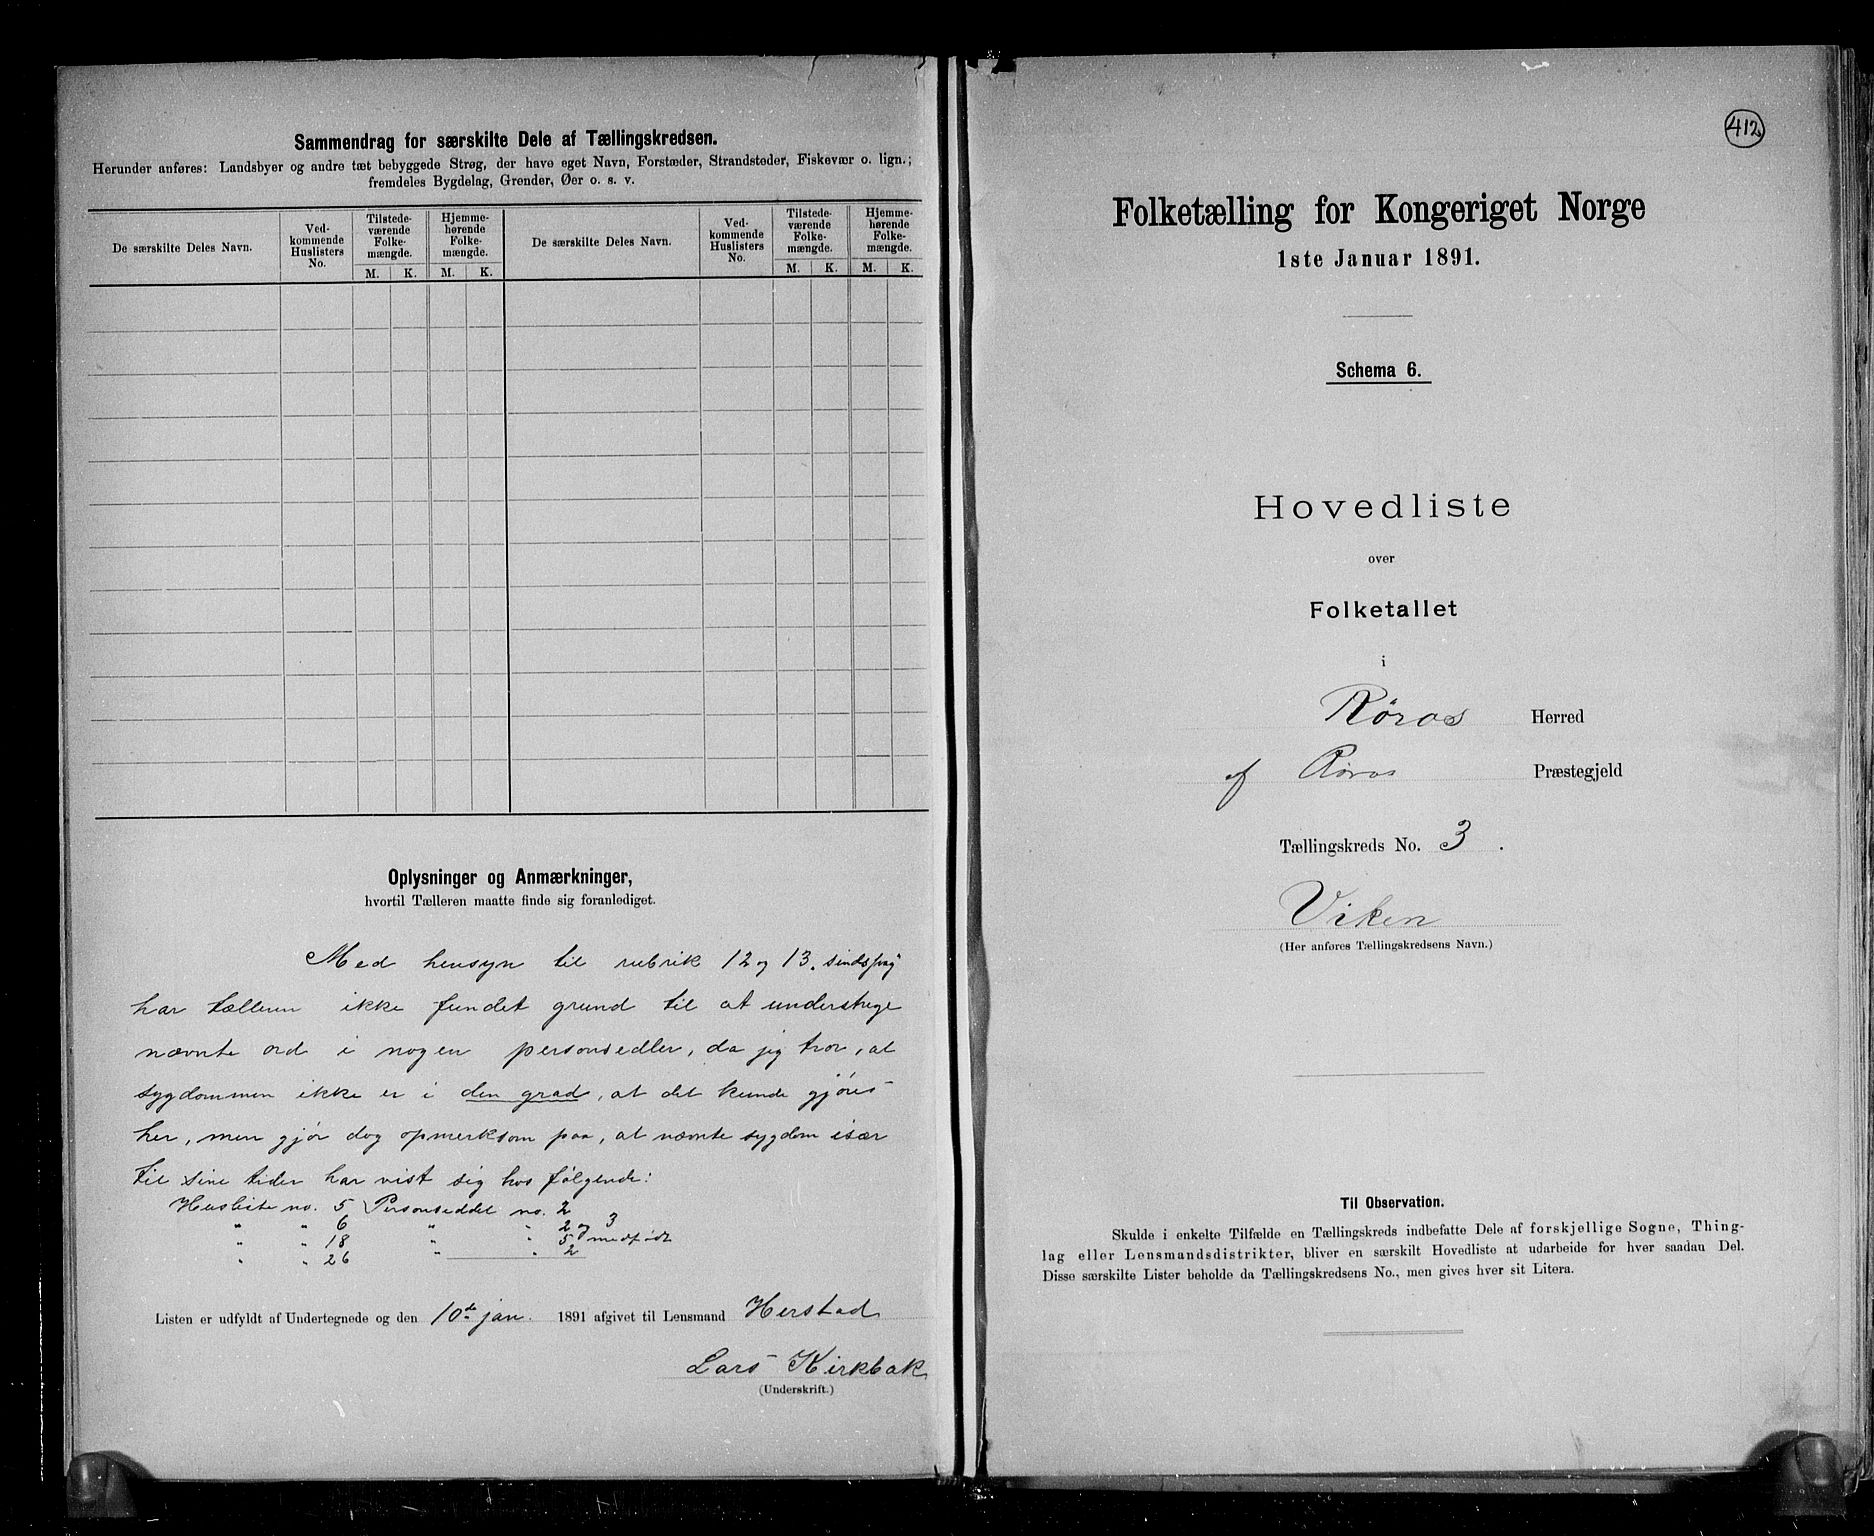 Sammendrag for særskilte Dele af Tællingskredsen.
Herunder anføres: Landsbyer og andre tæt bebyggede Strøg, der have eget Navn, Forstæder, Strandsteder, Fiskevær o. lign.;
fremdeles Bygdelag, Grender, Øer o. s. v.
De særskilte Deles Navn.
Ved-
kommende
Huslisters
No.
Tilstede-
værende
Folke-
mængde.
Hjemme-
hørende
Folke-
mængde.
M. K. M. K.
De særskilte Deles Navn.
Ved-
kommende
Huslisters
No.
Tilstede-
værende
Folke-
mængde.
Hjemme-
hørende
Folke-
mængde.
M. K. M. K.
Oplysninger og Anmærkninger,
hvortil Tælleren maatte finde sig foranlediget.
Med hensyn til rubrik 12 og 13.
har tælleren ikke fundet grund til at understrege
nævnte ord i nogen personsedler, da jeg tror, at
sygdommen ikke er i den grad, at det kunde gjøres
her, men gjør dog opmerksom paa, at nævnte sygdom især
til sine tider har vist sig hos følgende:
Husliste no. 5 Personseddel no. 2
" " 6 " " 2 og 3
" " 18 " " 5 medfødt
" " 26 " " 2
Listen er udfyldt af Undertegnede og den 10de jan. 1891 afgivet til Lensmand Herstad
Lars Kirkbak
(Underskrift.)
412
Folketælling for Kongeriget Norge
1ste Januar 1891.
Schema 6.
Hovedliste
over
Folketallet
i
Røros Herred
af Røros Præstegjeld
Tællingskreds No. 3.
Viken
(Her anføres Tællingskredsens Navn.)
Til Observation.
Skulde i enkelte Tilfælde en Tællingskreds indbefatte Dele af forskjellige Sogne, Thing-
lag eller Lensmandsdistrikter, bliver en særskilt Hovedliste at udarbeide for hver saadan Del.
Disse særskilte Lister beholde da Tællingskredsens No., men gives hver sit Litera.